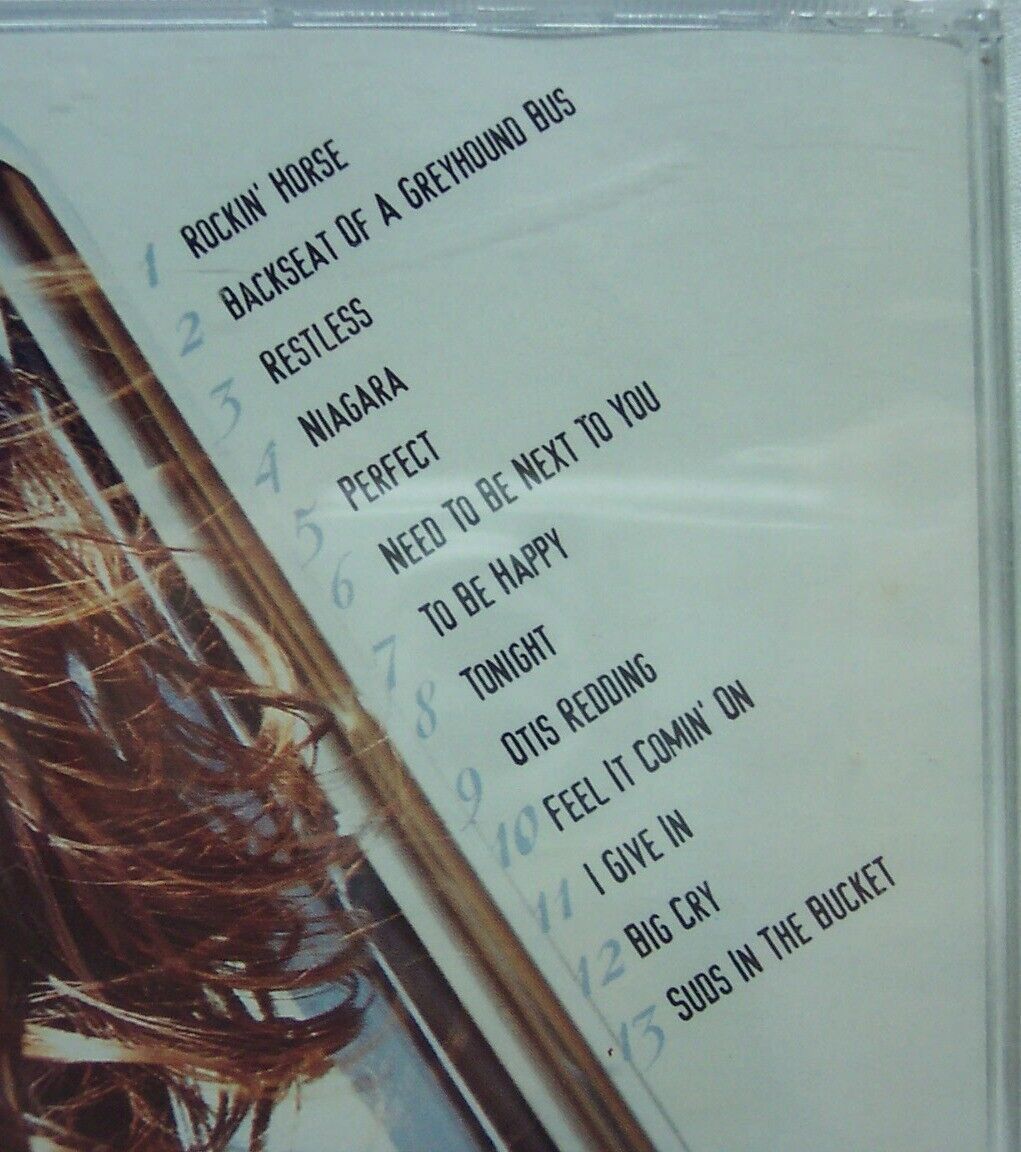 1 ROCKIN' HORSE
2 BACKSEAT OF A GREYHOUND BUS
3 RESTLESS
4 NIAGARA
5 PERFECT
6 NEED TO BE NEXT TO YOU
7 TO BE HAPPY
8 TONIGHT
9 OTIS REDDING
10 FEEL IT COMIN' ON
11 I GIVE IN
12 BIG CRY
13 SUDS IN THE BUCKET